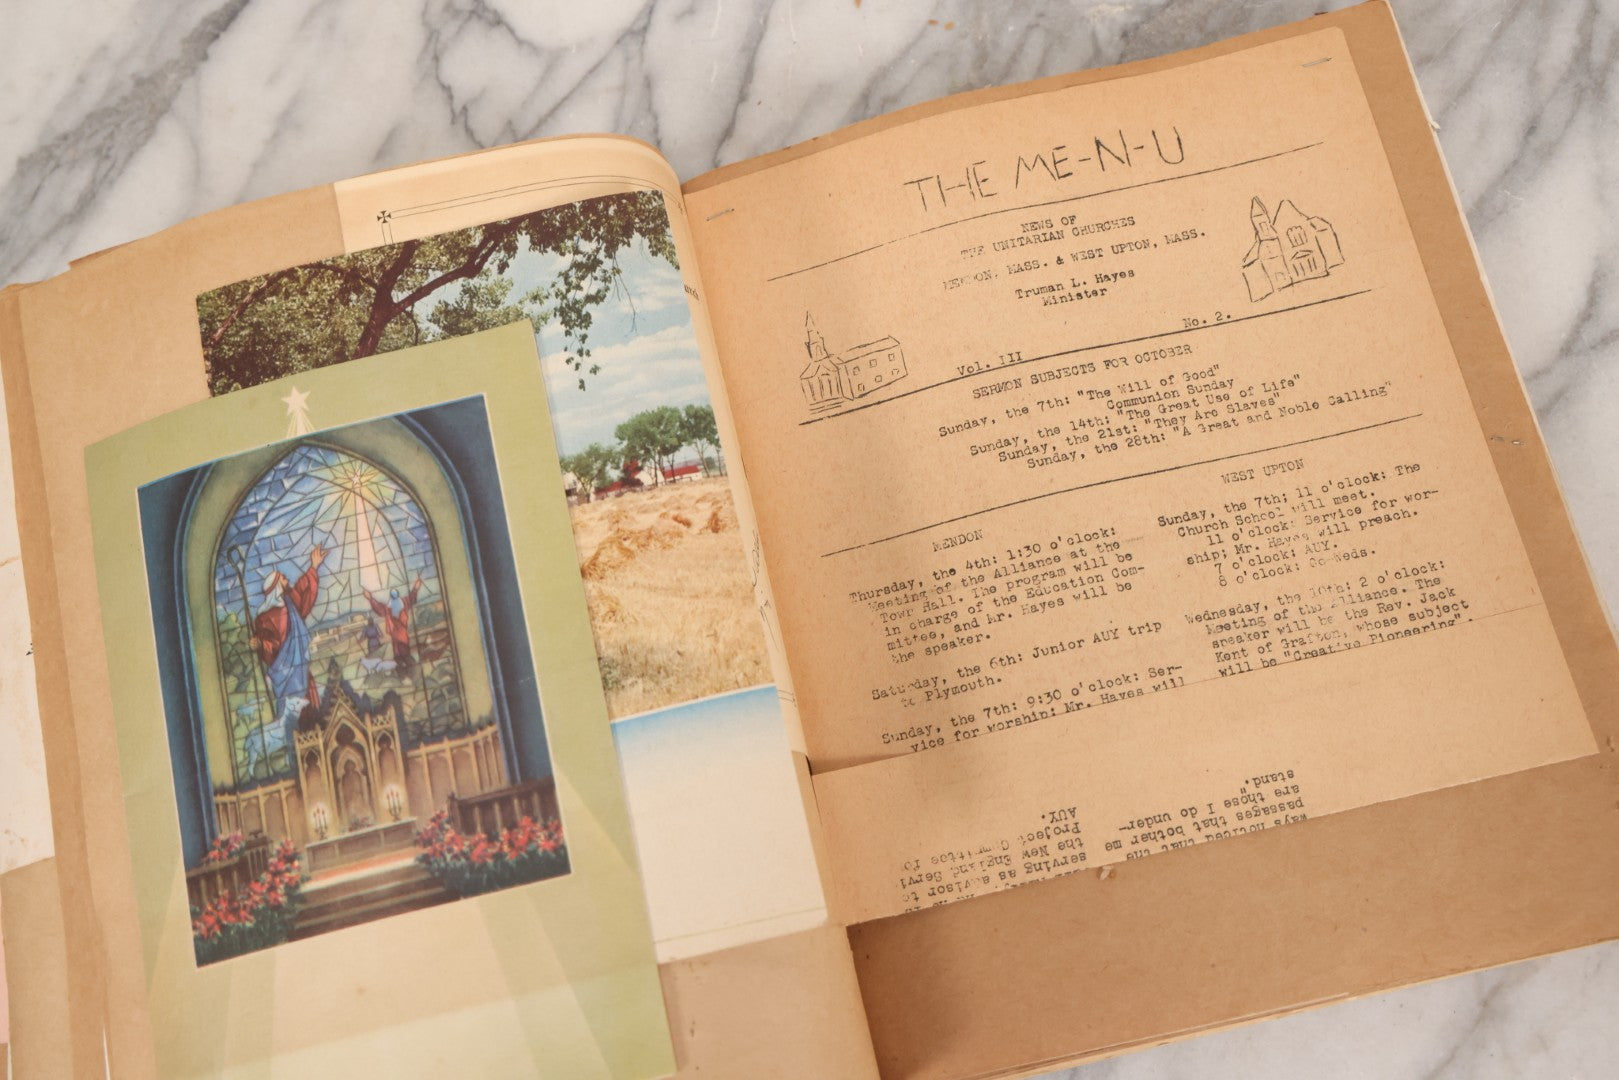 THE ME-N-U
NEWS OF
THE UNITARIAN CHURCHES
MENDON, MASS. & WEST UPTON, MASS.
Truman L. Hayes
Minister
Vol. III No. 2.
SERMON SUBJECTS FOR OCTOBER
Sunday, the 7th: "The Will of Good"
Communion Sunday
Sunday, the 14th: "The Great Use of Life"
Sunday, the 21st: "They Are Slaves"
Sunday, the 28th: "A Great and Noble Calling"
MENDON
Thursday, the 4th: 1:30 o'clock:
Meeting of the Alliance at the
Town Hall. The program will be
in charge of the Education Com-
mittee, and Mr. Hayes will be
the speaker.
Saturday, the 6th: Junior AUY trip
to Plymouth.
Sunday, the 7th: 9:30 o'clock: Ser-
vice for worship: Mr. Hayes will
WEST UPTON
Sunday, the 7th; 11 o'clock: The
Church School will meet.
11 o'clock: Service for wor-
ship; Mr. Hayes will preach.
7 o'clock: AUY.
8 o'clock: Co-Weds.
Wednesday, the 10th: 2 o'clock:
Meeting of the Alliance. The
speaker will be the Rev. Jack
Kent of Grafton, whose subject
will be "Creative Pioneering".
ways noticed that the
passages that bother me
are those I do under-
stand."
serving as advisor to
the New England Servi
Project Committee for
AUY.